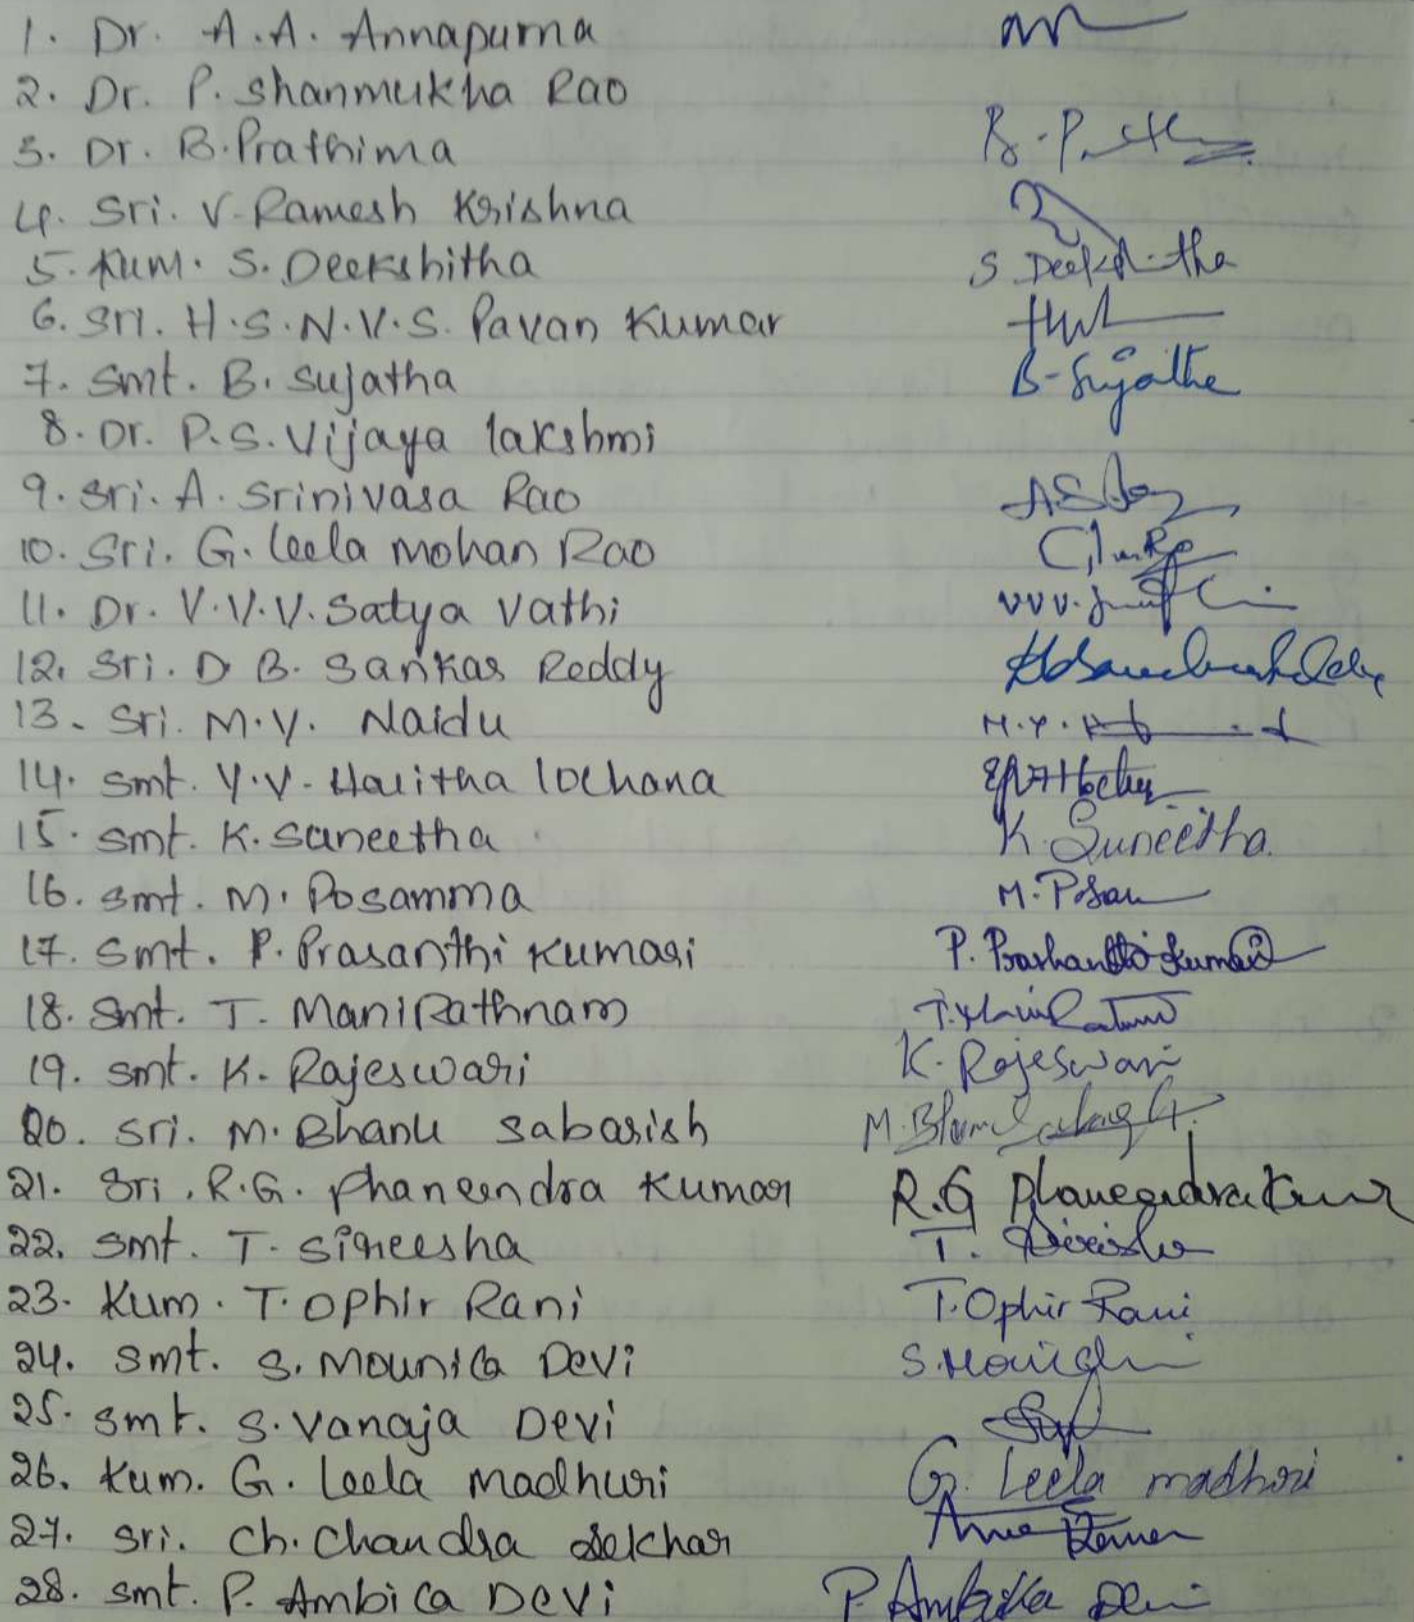 1. Dr. A.A. Annapurna
2. Dr. P. Shanmukha Rao
3. Dr. B. Prathima B. P
4. Sri. V. Ramesh Krishna
5. Kum. S. Deekshitha S Deekshitha
6. Sri. H.S.N.V.S. Pavan Kumar
7. Smt. B. Sujatha B-Sujatha
8. Dr. P.S. Vijaya lakshmi
9. Sri. A. Srinivasa Rao
10. Sri. G. Leela mohan Rao
11. Dr. V.V.V. Satya Vathi VVV.
12. Sri. D B. Sankar Reddy
13. Sri. M.Y. Naidu M.Y.
14. Smt. Y.V. Haritha lochana
15. Smt. K. Suneetha K. Suneetha
16. Smt. M. Posamma M. Posam
17. Smt. P. Prasanthi Kumari P. Prashanthi Kumari
18. Smt. T. ManiRathnam T. Mani Ratnam
19. Smt. K. Rajeswari K. Rajeswari
20. Sri. M. Bhanu Sabarish M. Bhanu
21. Sri. R.G. Phaneendra Kumar R.G Phaneendra Kumar
22. Smt. T. Sireesha T. Sirisha
23. Kum. T. Ophir Rani T. Ophir Rani
24. Smt. S. Mounica Devi
25. Smt. S. Vanaja Devi
26. Kum. G. Leela Madhuri G. Leela madhuri
27. Sri. Ch. Chandra Sekhar
28. Smt. P. Ambica Devi P. Ambika Devi